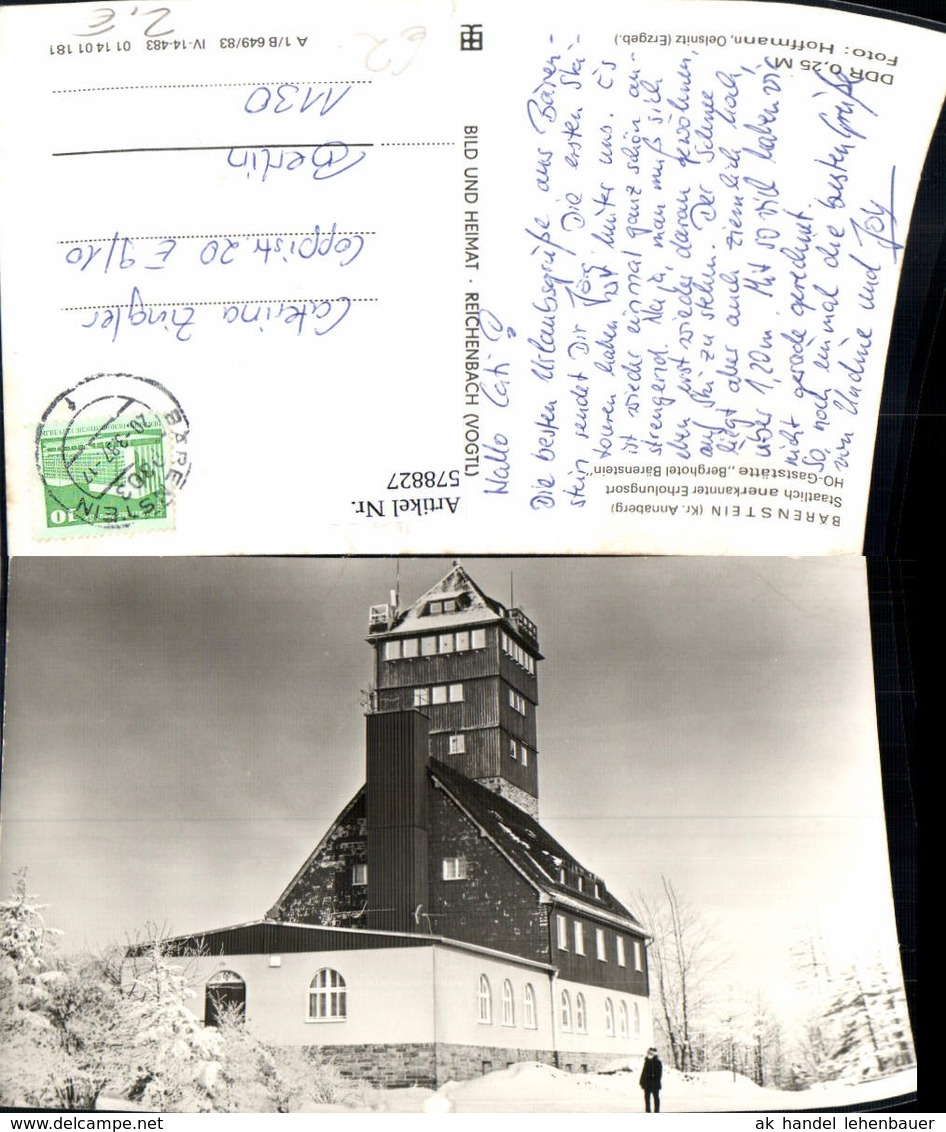 BÄRENSTEIN (Kr. Annaberg)
Staatlich anerkannter Erholungsort
HO-Gaststätte „Berghotel Bärenstein"
Hallo Cati!
Die besten Urlaubsgrüße aus Bären-
stein sendet Dir Jörg. Die ersten Ski-
touren haben wir hinter uns. Es
ist wieder einmal ganz schön an-
strengend. Na ja, man muß sich
eben erst wieder daran gewöhnen,
auf Ski zu stehen. Der Schnee
liegt aber auch ziemlich hoch,
über 1,20m. Mit so viel haben wir
nicht gerade gerechnet.
So, noch einmal die besten Grüße
von Undine und Jörg
DDR 0,25 M
Foto: Hoffmann, Oelsnitz (Erzgeb.)
BILD UND HEIMAT · REICHENBACH (VOGTL)
Artikel Nr.
578827
BÄRENSTEIN
9303
10
Caterina Zingler
Coppistr. 20 E 9/10
Berlin
1130
A 1/B 649/83 IV-14-483 01 14 01 181
2,€
62
ak handel lehenbauer